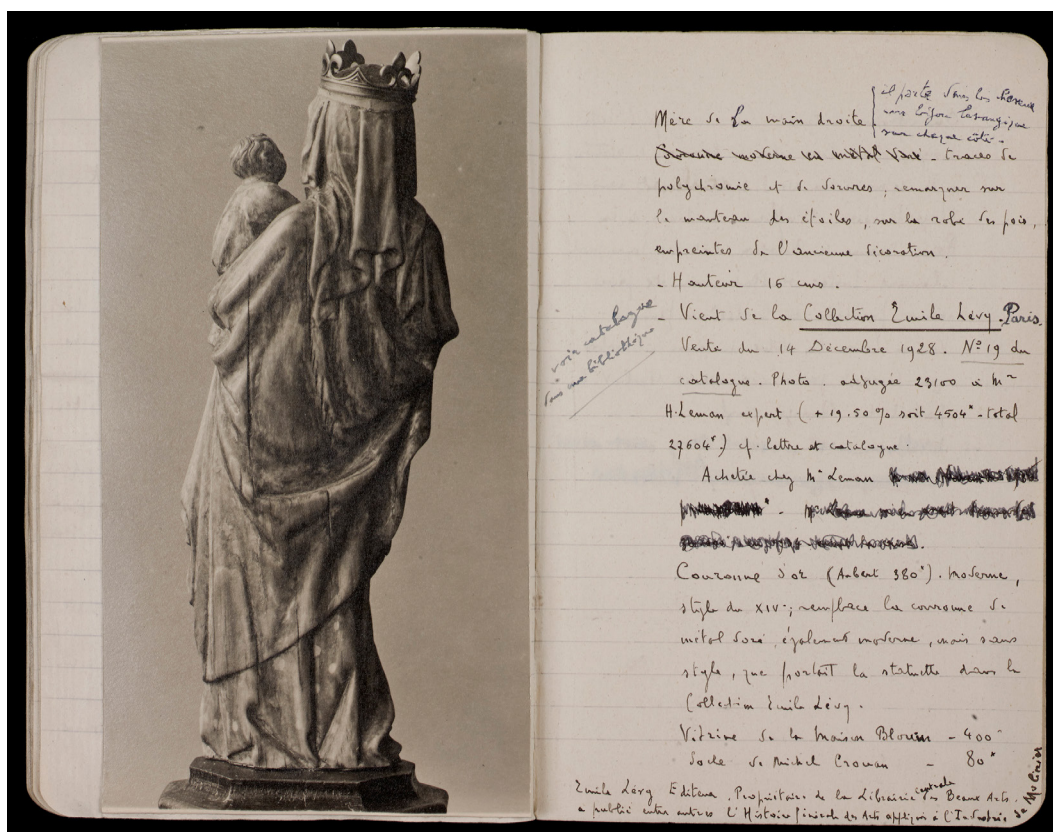 il porte dans les cheveux
un bijou losangique
sur chaque côté.
Mère de la main droite
Couronne moderne en métal doré - traces de
polychromie et de dorures ; remarquer sur
le manteau des étoiles, sur la robe des pois,
empreintes de l'ancienne décoration.
- Hauteur 16 cms.
- Vient de la Collection Emile Lévy. Paris.
voir catalogue
dans ma bibliothèque
Vente du 14 Décembre 1928. N° 19 du
catalogue. Photo. adjugée 23100 à Mr
H. Leman expert ( + 19.50 % soit 4504 - total
27604 ) cf. lettre et catalogue.
Achetée chez Mr Leman
Couronne d'or (Aubert 380). Moderne,
style du XIV ; remplace la couronne de
métal doré, également moderne, mais sans
style, que portait la statuette dans la
Collection Emile Lévy.
Vitrine de la Maison Blouin - 400
Socle de Michel - 80
Emile Lévy Editeur. Propriétaire de la Librairie centrale des Beaux Arts.
a publié entre autres l'Histoire générale des Arts appliqués à l'Industrie de Molinier